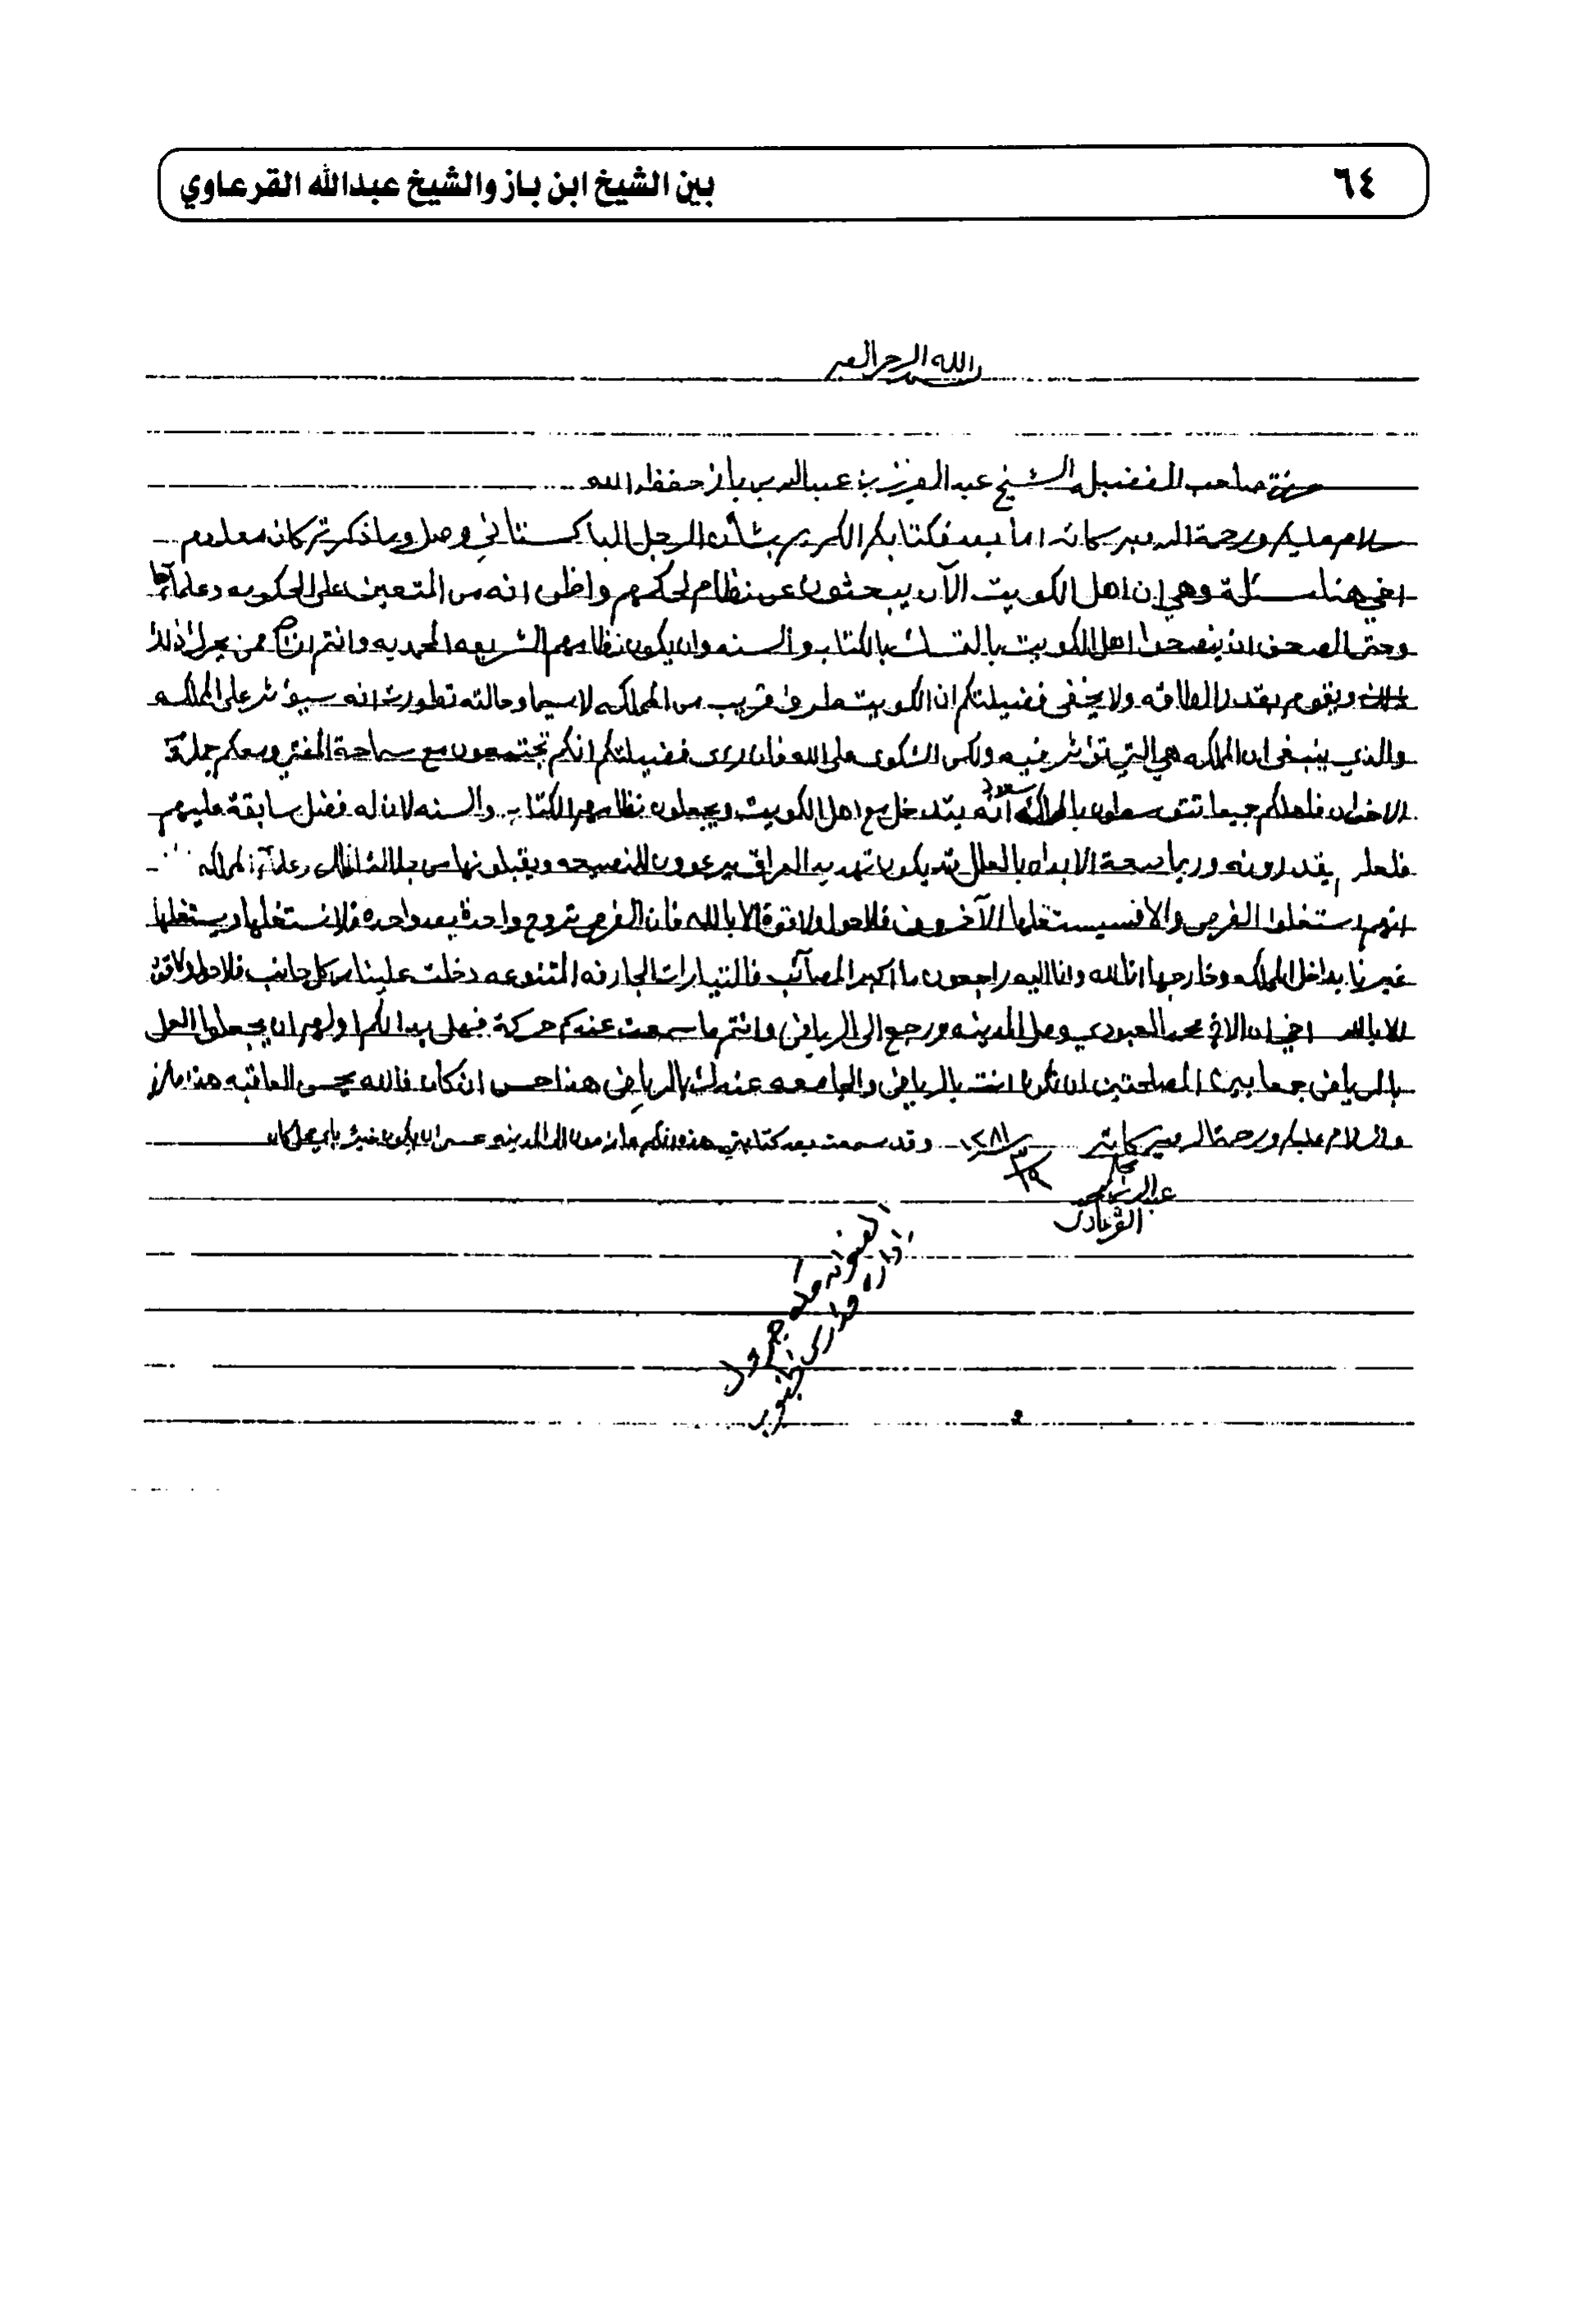 ٦٤ بين الشيخ ابن باز والشيخ عبدالله القرعاوي
بسم الله الرحمن الرحيم
حضرة صاحب الفضيلة الشيخ عبد العزيز بن عبد الله بن باز حفظه الله
سلام عليكم ورحمة الله وبركاته اما بعد فكتابكم الكريم بشأن الرجل الباكستاني وصل وما ذكرتم كان معلوم
اخي هنا مسئلة وهي ان اهل الكويت الآن يبحثون عن نظام لحكمهم واظن انه من المتعين على الحكومه وعلمائها
وحتى الصحف ان ينصحوا اهل الكويت بالتمسك بالكتاب والسنه وان يكون نظامهم الشريعه المحمديه وانتم ممن يحرك ذلك
ويقوم بقدر الطاقه ولا يخفى فضيلتكم ان الكويت طرف قريب من المملكه لا سيما وحالته تطورت انه سيؤثر على المملكه
والذي ينبغي ان المملكه هي التي تؤثر فيه ولكن الشكوى على الله فان رأى فضيلتكم انكم تجتمعون مع سماحة المفتي ومعكم جملة
الاخوان فلعلكم جميعا تتوسطون بالملك سعود انه يتدخل مع اهل الكويت ويجعلون نظامهم الكتاب والسنه لان له فضل سابقة عليهم
فلعلهم يقدرونه وربما صحة الابدان بالعلل قد يكون تهديد العراق يرعوون للنصيحه ويقبلونها من جلالة الملك وعلماء المملكه
انهم استغلوا الفرص والا فسيستغلها الآخرون فلا حول ولا قوة الا بالله فان الفرص تروح واحدة بعد واحده فلا نستغلها ويستغلها
غيرنا بداخل المملكه وخارجها انا لله وانا اليه راجعون ما اكبر المصائب فالتيارات الجارفه المتنوعه دخلت علينا من كل جانب فلا حول ولا قوة
الا بالله اخي ان الاخ محمد العبودي وصل المدينه ورجع الى الرياض وانتم ما سمعت عنكم حركة فهل بدا لكم او لهم ان يجعلوا العمل
بالرياض جمعا بين المصلحتين ان تكون انت بالرياض والجامعه عندك بالرياض هذا حسن ان كان فالله يحسن العاقبه هذا ما لزم
والسلام عليكم ورحمة الله وبركاته وقد سمعت بعد كتابتي هذه انكم عازمون الى المدينه عسى ان يكون خير باي محل كان
عبد الله بن محمد
القرعاوي
العنوان مكه جرول
اداره مدارس الجنوب